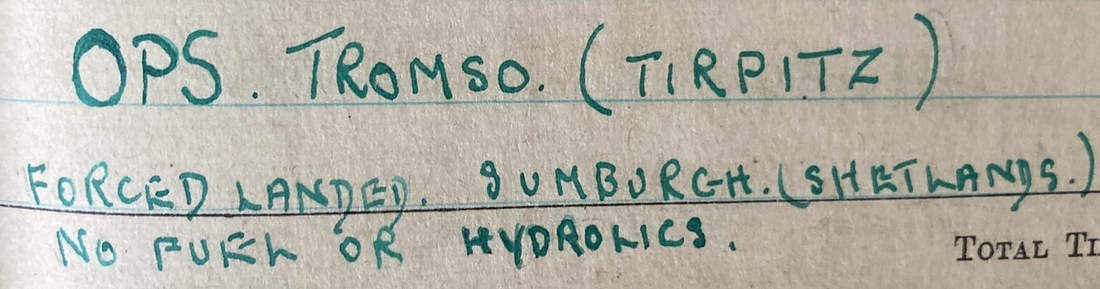 OPS. TROMSO. (TIRPITZ)
FORCED LANDED. SUMBURGH. (SHETLANDS.)
NO FUEL OR HYDROLICS.
TOTAL TI